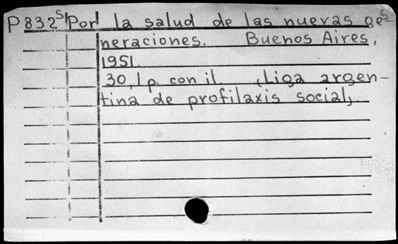 P832s Por la salud de las nuevas ge
neraciones. Buenos Aires,
1951.
30,1p. con il. (Liga argen-
tina de profilaxis social)